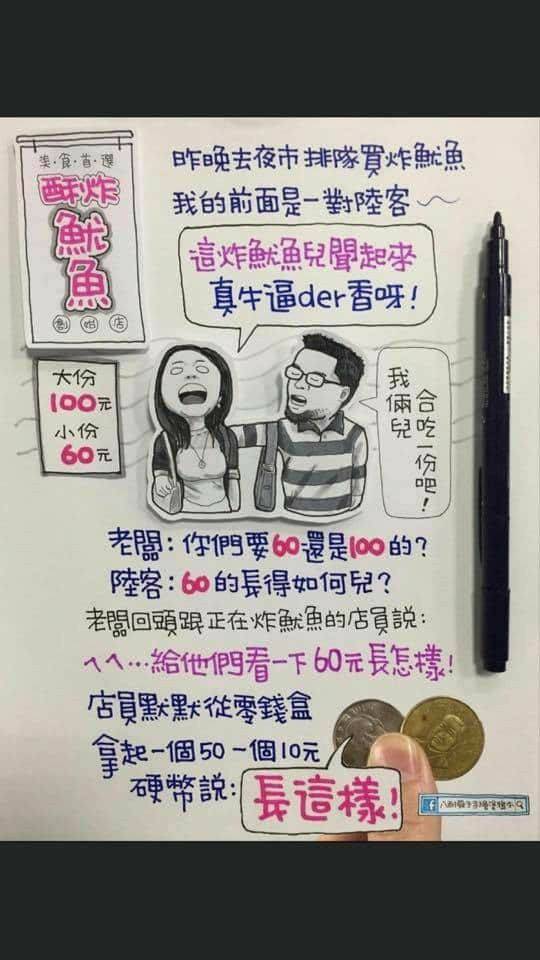 美·食·首·選
酥炸
魷魚
創始店
大份
100元
小份
60元
昨晚去夜市排隊買炸魷魚
我的前面是一對陸客~
這炸魷魚兒聞起來
真牛逼der香呀!
我倆兒
合吃一份吧!
老闆:你們要60還是100的?
陸客:60的長得如何兒?
老闆回頭跟正在炸魷魚的店員說:
ㄟㄟ…給他們看一下60元長怎樣!
店員默默從零錢盒
拿起一個50一個10元
硬幣說:
長這樣!